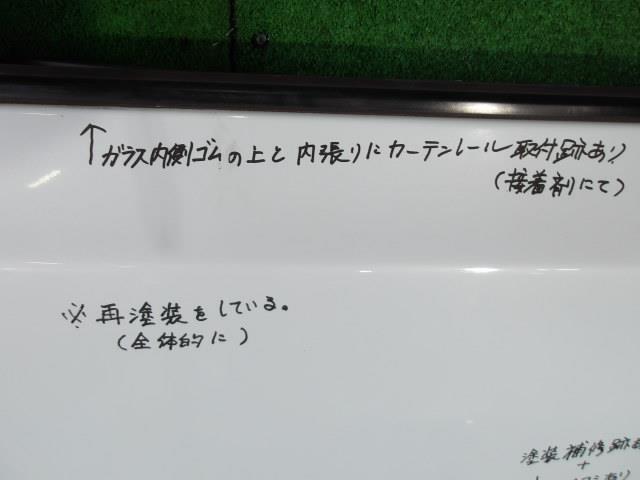 ↑ガラス内側ゴムの上と内張りにカーテンレール取付跡あり
(接着剤にて)
※ 再塗装をしている。
(全体的に)
塗装補修跡あ
+